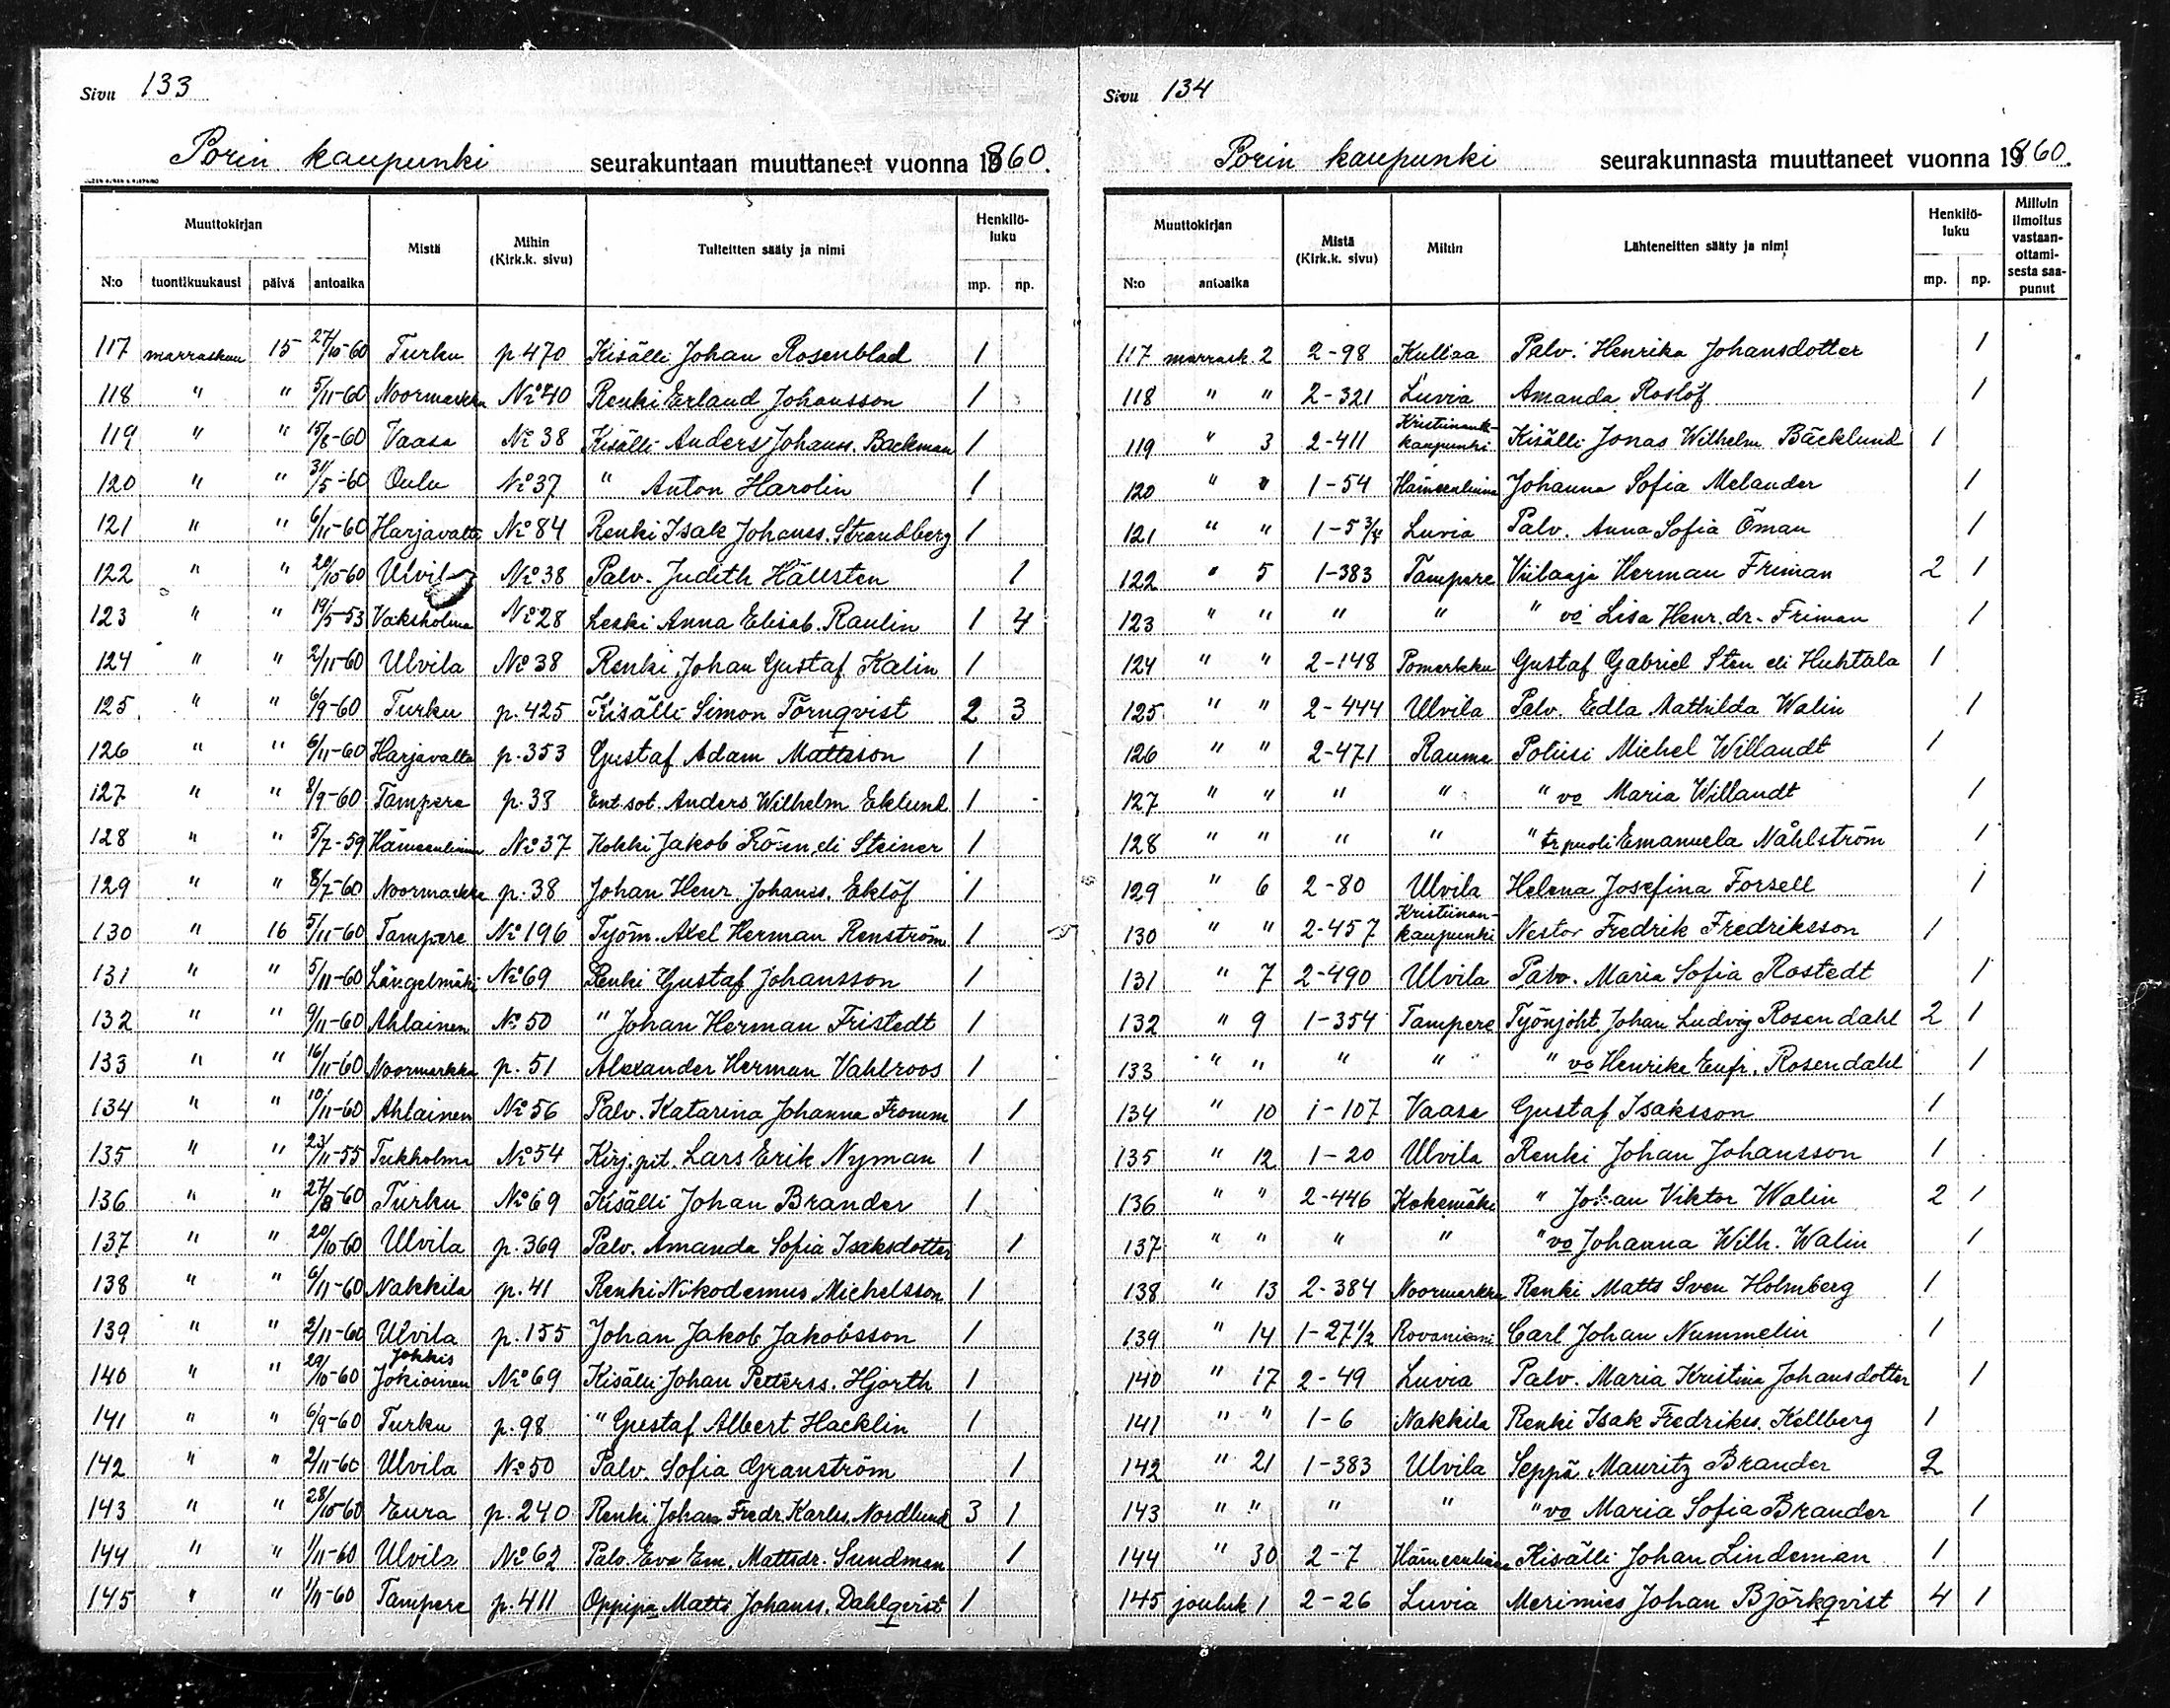 Sivu 133
Porin kaupunki seurakuntaan muuttaneet vuonna 1860.
Muuttokirjan Mistä Mihin (Kirk.k. sivu) Tulleitten sääty ja nimi Henkilö-luku
N:o tuontikuukausi päivä antoaika mp. np.
117 marraskuu 15 27/10-60 Turku p. 470 Kisälli Johan Rosenblad 1
118 " " 5/11-60 Noormarkku No 40 Renki Erland Johansson 1
119 " " 15/6-60 Vaasa No 38 Kisälli Anders Johanss. Backman 1
120 " " 31/5-60 Oulu No 37 " Anton Harolin 1
121 " " 6/11-60 Harjavalta No 84 Renki Isak Johanss. Strandberg 1
122 " " 20/10-60 Ulvila No 38 Palv. Judith Hällsten 1
123 " " 19/5-53 Vaksholma No 28 Leski Anna Elisab. Raulin 1 4
124 " " 2/11-60 Ulvila No 38 Renki Johan Gustaf Kalin 1
125 " " 6/9-60 Turku p. 425 Kisälli Simon Törnqvist 2 3
126 " " 6/11-60 Harjavalta p. 353 Gustaf Adam Mattsson 1
127 " " 8/9-60 Tampere p. 38 Ent. sot. Anders Wilhelm Eklund 1
128 " " 5/7-59 Hämeenlinna No 37 Kokki Jakob Rosen eli Steiner 1
129 " " 8/7-60 Noormarkku p. 38 Johan Henr. Johanss. Eklöf 1
130 " 16 5/11-60 Tampere No 196 Työm. Axel Herman Renström 1
131 " " 5/11-60 Längelmäki No 69 Renki Gustaf Johansson 1
132 " " 9/11-60 Ahlainen No 50 " Johan Herman Fristedt 1
133 " " 16/11-60 Noormarkku p. 51 Alexander Herman Vahlroos 1
134 " " 10/11-60 Ahlainen No 56 Palv. Katarina Johanna Fromm 1
135 " " 23/11-55 Tukholma No 54 Kirj. pit. Lars Erik Nyman 1
136 " " 27/8-60 Turku No 69 Kisälli Johan Brander 1
137 " " 20/10-60 Ulvila p. 369 Palv. Amanda Sofia Isaksdotter 1
138 " " 6/11-60 Nakkila p. 41 Renki Nikodemus Michelsson 1
139 " " 2/11-60 Ulvila p. 155 Johan Jakob Jakobsson 1
140 " " 29/10-60 Jokkis Jokioinen No 69 Kisälli Johan Petterss. Hjorth 1
141 " " 6/9-60 Turku p. 98 " Gustaf Albert Hacklin 1
142 " " 2/11-60 Ulvila No 50 Palv. Sofia Granström 1
143 " " 28/10-60 Eura p. 240 Renki Johan Fredr. Karlss. Nordlund 3 1
144 " " 1/11-60 Ulvila No 62 Palv. Eva Em. Mattsdr. Sundman 1
145 " " 1/11-60 Tampere p. 411 Oppipa Matts Johanss. Dahlqvist 1
Sivu 134
Porin kaupunki seurakunnasta muuttaneet vuonna 1860.
Muuttokirjan Mistä (Kirk.k. sivu) Mihin Lähteneitten sääty ja nimi Henkilö-luku Milloin ilmoitus vastaan-ottami-sesta saa-punut
N:o antoaika mp. np.
117 marrask. 2 2-98 Kullaa Palv. Henrika Johansdotter 1
118 " " 2-321 Luvia Amanda Roslöf 1
119 " 3 2-411 Kristiinan-kaupunki Kisälli Jonas Wilhelm Bäcklund 1
120 " " 1-54 Hämeenlinna Johanna Sofia Melander 1
121 " " 1-5 3/4 Luvia Palv. Anna Sofia Öman 1
122 " 5 1-383 Tampere Viilaaja Herman Friman 2 1
123 " " " " " vo Lisa Henr. dr. Friman 1
124 " " 2-148 Pomarkku Gustaf Gabriel Sten eli Huhtala 1
125 " " 2-444 Ulvila Palv. Edla Mathilda Walin 1
126 " " 2-471 Rauma Poliisi Michel Willandt 1
127 " " " " " vo Maria Willandt 1
128 " " " " " tr puoli Emanuela Måhlström 1
129 " 6 2-80 Ulvila Helena Josefina Forsell 1
130 " " 2-457 Kristiinan-kaupunki Nestor Fredrik Fredriksson 1
131 " 7 2-490 Ulvila Palv. Maria Sofia Rostedt 1
132 " 9 1-354 Tampere Työnjoht. Johan Ludvig Rosendahl 2 1
133 " " " " " vo Henrika Eufr. Rosendahl 1
134 " 10 1-107 Vaasa Gustaf Isaksson 1
135 " 12 1-20 Ulvila Renki Johan Johansson 1
136 " " 2-446 Kokemäki " Johan Viktor Walin 2 1
137 " " " " " vo Johanna Wilh. Walin 1
138 " 13 2-384 Noormarkku Renki Matts Sven Holmberg 1
139 " 14 1-27 1/2 Rovaniemi Carl Johan Nummelin 1
140 " 17 2-49 Luvia Palv. Maria Kristina Johansdotter 1
141 " " 1-6 Nakkila Renki Isak Fredrikss. Kellberg 1
142 " 21 1-383 Ulvila Seppä Mauritz Brander 2
143 " " " " " vo Maria Sofia Brander 1
144 " 30 2-7 Hämeenlinna Kisälli Johan Lindeman 1
145 jouluk 1 2-26 Luvia Merimies Johan Björkqvist 4 1